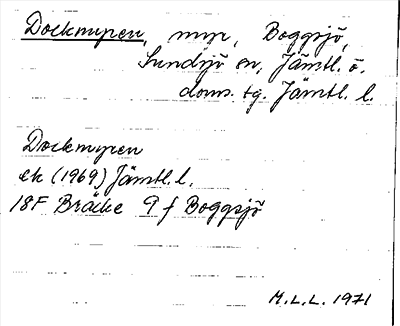 Dockmyren, myr, Boggsjö,
Sundsjö sn, Jämtl. ö.
doms. tg. Jämtl. l.
Dockmyren
ek (1969) Jämtl. l.
18F Bräcke 9 f Boggsjö
M.L.L. 1971